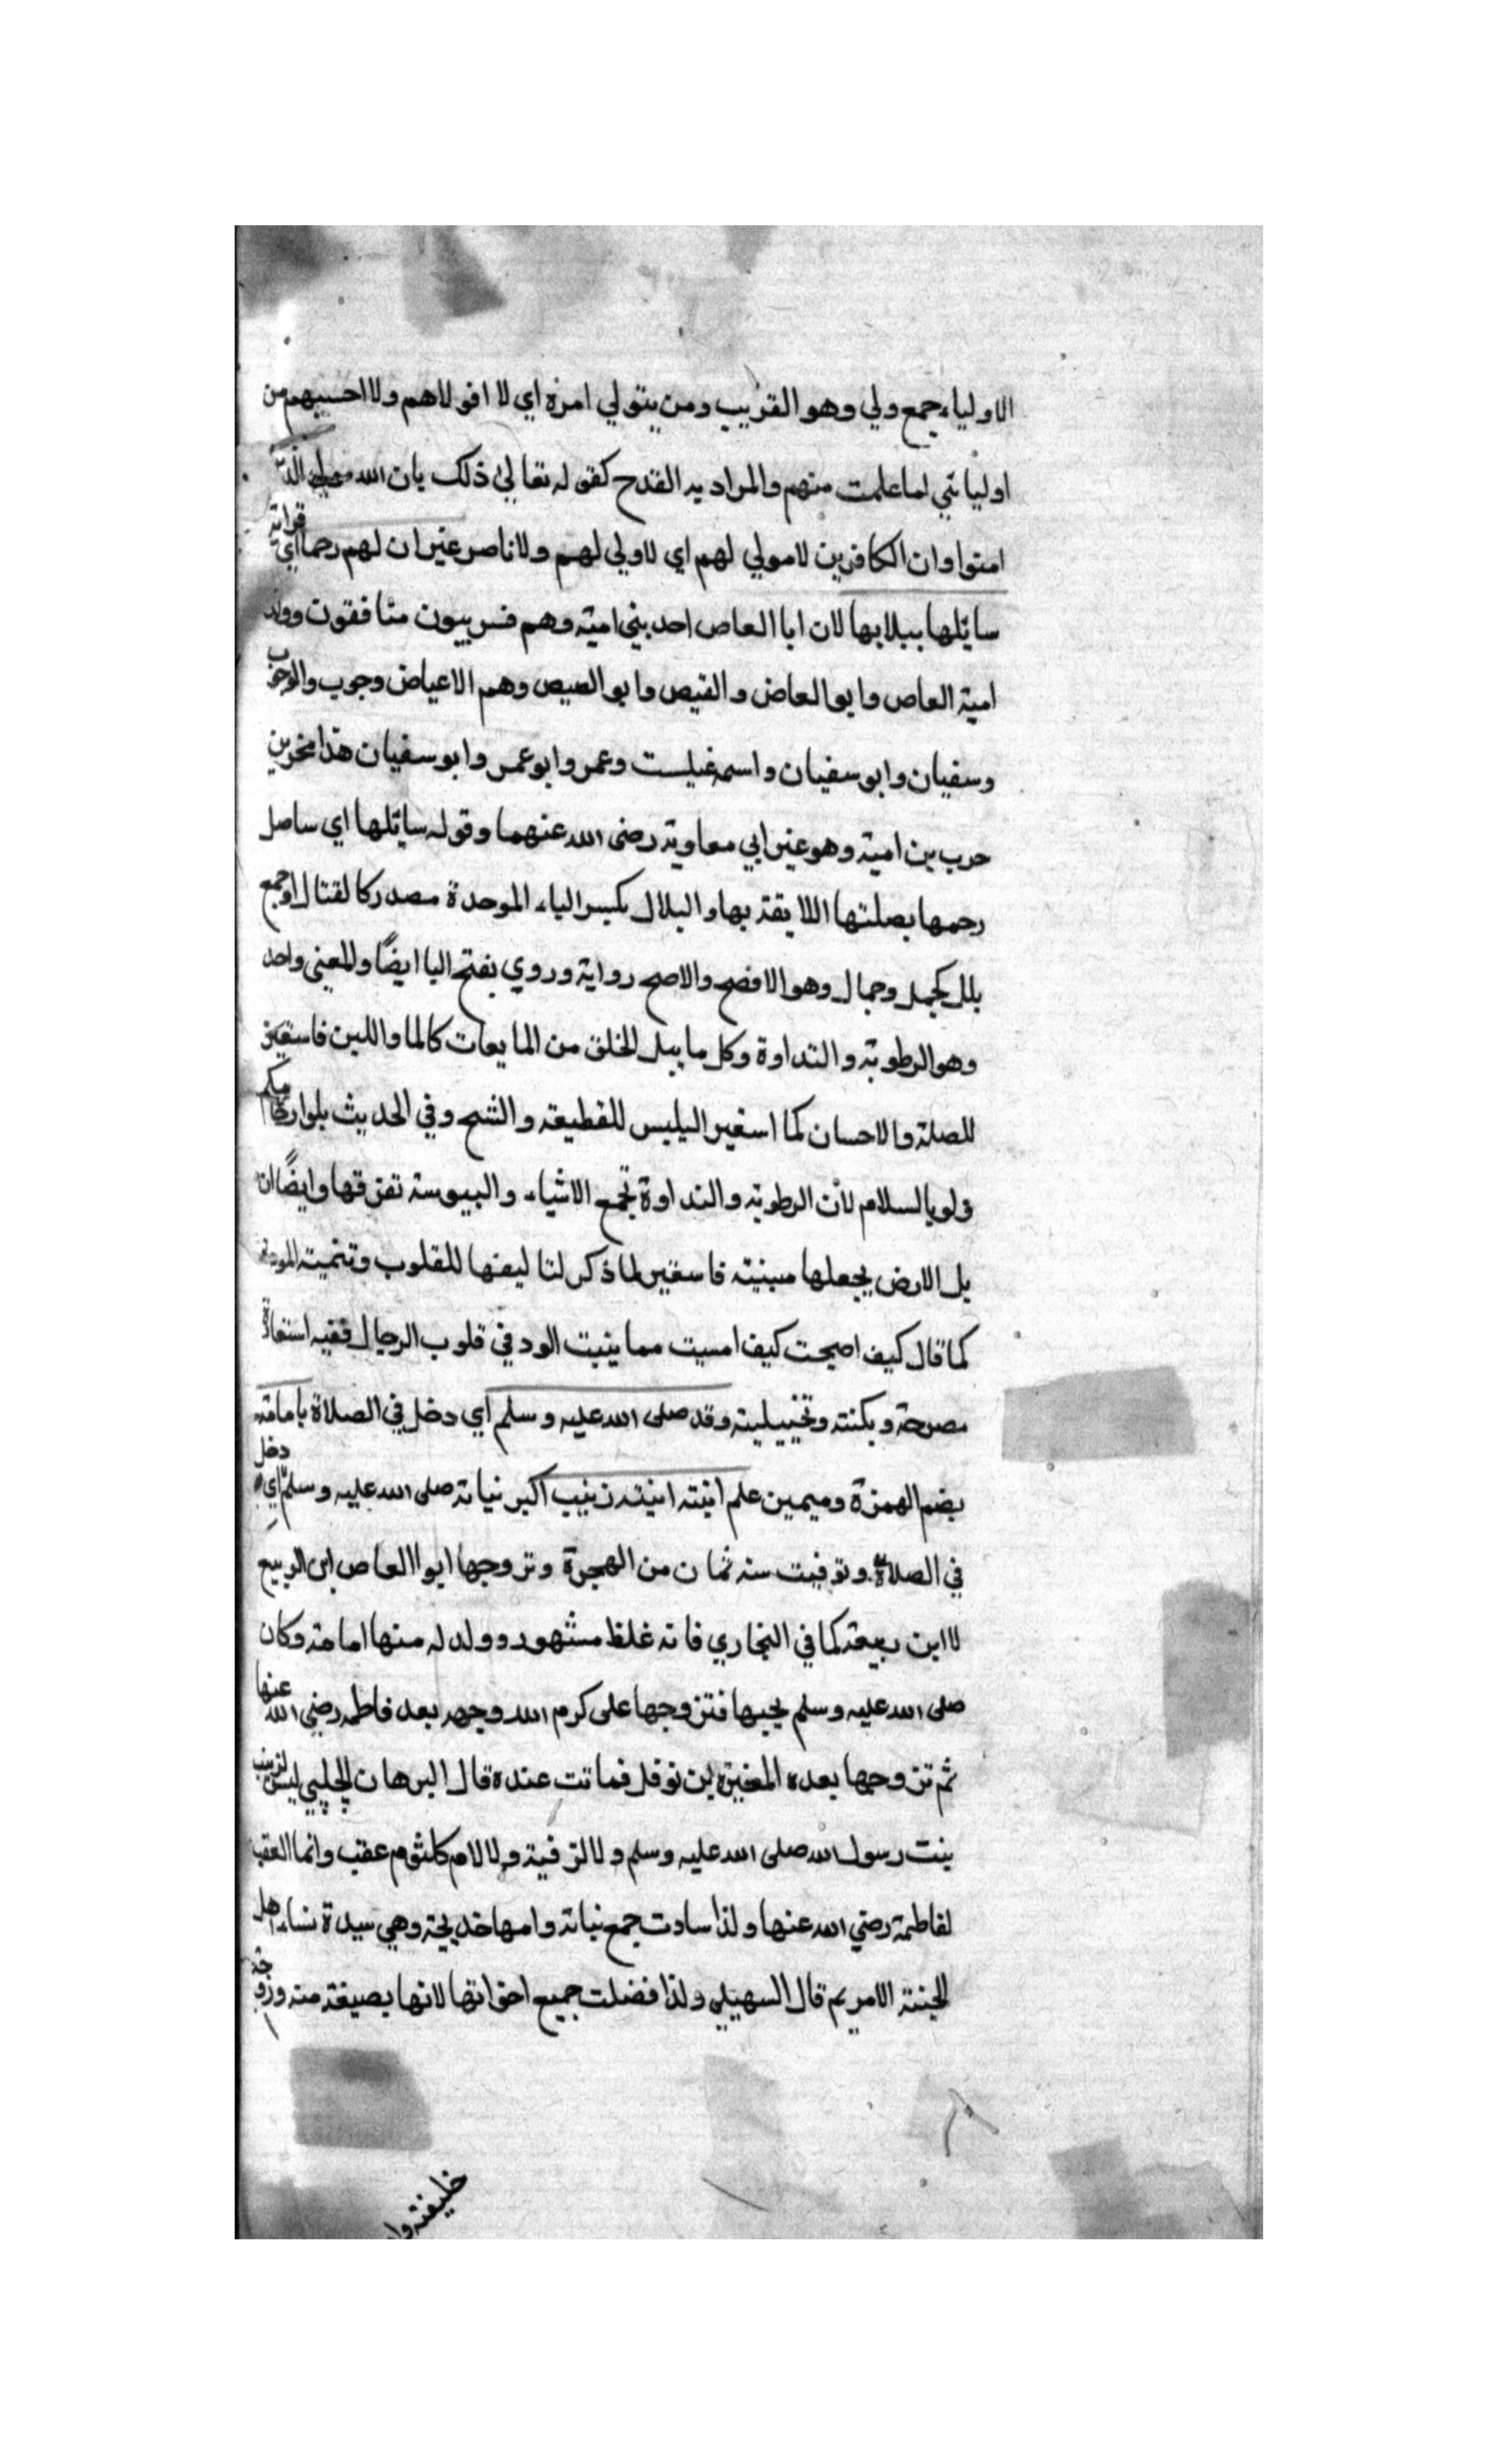 الاولياء جمع ولي وهو القريب ومن يتولي امره اي لا اقولاهم ولا احسبهم من
اوليائي لما علمت منهم والمراد به القدح كقوله تعالي ذلك بان الله مولي الذين
امنوا وان الكافرين لا مولي لهم اي لا ولي لهم ولا ناصر غير ان لهم رحما اي قرابة
سائلها ببلابها لان ابا العاص احد بني امية وهم قريبون منافقون وولد
امية العاص وابو العاص والقيص وابو العيص وهم الاعياص وحرب وابو حرب
وسفيان وابو سفيان واسمه غيلست وعمر وابو عمر وابو سفيان هذا صخر بن
حرب بن امية وهو غير ابي معاوية رضى الله عنهما وقوله سائلها اي ساصل
رحمها بصلتها اللايقة بها والبلال بكسر الباء الموحدة مصدر كالقتال او جمع
بلل كجمل وجمال وهو الافصح والاصح رواية وروي بفتح البا ايضًا والمعنى واحد
وهو الرطوبة والنداوة وكل ما يبل الحلق من المايعات كالما واللبن فاستعير
للصلة والاحسان كما استعير اليبس للقطيعة والشح وفي الحديث بلوا ارحامكم
ولو بالسلام لأن الرطوبة والنداوة تجمع الاشياء واليبوسة تفرقها وايضًا ان
بل الارض يجعلها مبنية فاستعير لما ذكر لتاليفها للقلوب وتنمية المودة
كما قال كيف اصبحت كيف امسيت مما ينبت الود في قلوب الرجال ففيه استعارة
مصرحة وبكنته وتخييلية وقد صلى الله عليه وسلم اي دخل في الصلاة بامامة
بضم الهمزة وميمين علم ابنته ابنته زينب اكبر نباته صلى الله عليه وسلم اي دخل
في الصلاة وتوفيت سنه ثمان من الهجرة وتزوجها ابوا العاص ابن الربيع
لا ابن ربيعة كما في البخاري فانه غلط مشهور وولد له منها امامة وكان
صلى الله عليه وسلم يحبها فتزوجها على كرم الله وجهه بعد فاطمه رضي الله عنها
ثم تزوجها بعده المغيرة بن نوفل فماتت عنده قال البرهان الحلبي ليس لزينب
بنت رسول الله صلى الله عليه وسلم ولا لرقية ولا لام كلثوم عقب وانما العقب
لفاطمة رضي الله عنها ولذا سادت جمع نباته وامها خديجة وهي سيدة نساء اهل
الجنة الا مريم قال السهيلي ولذا فضلت جميع اخواتها لانها بضيعة منه وزوجة
خليفته